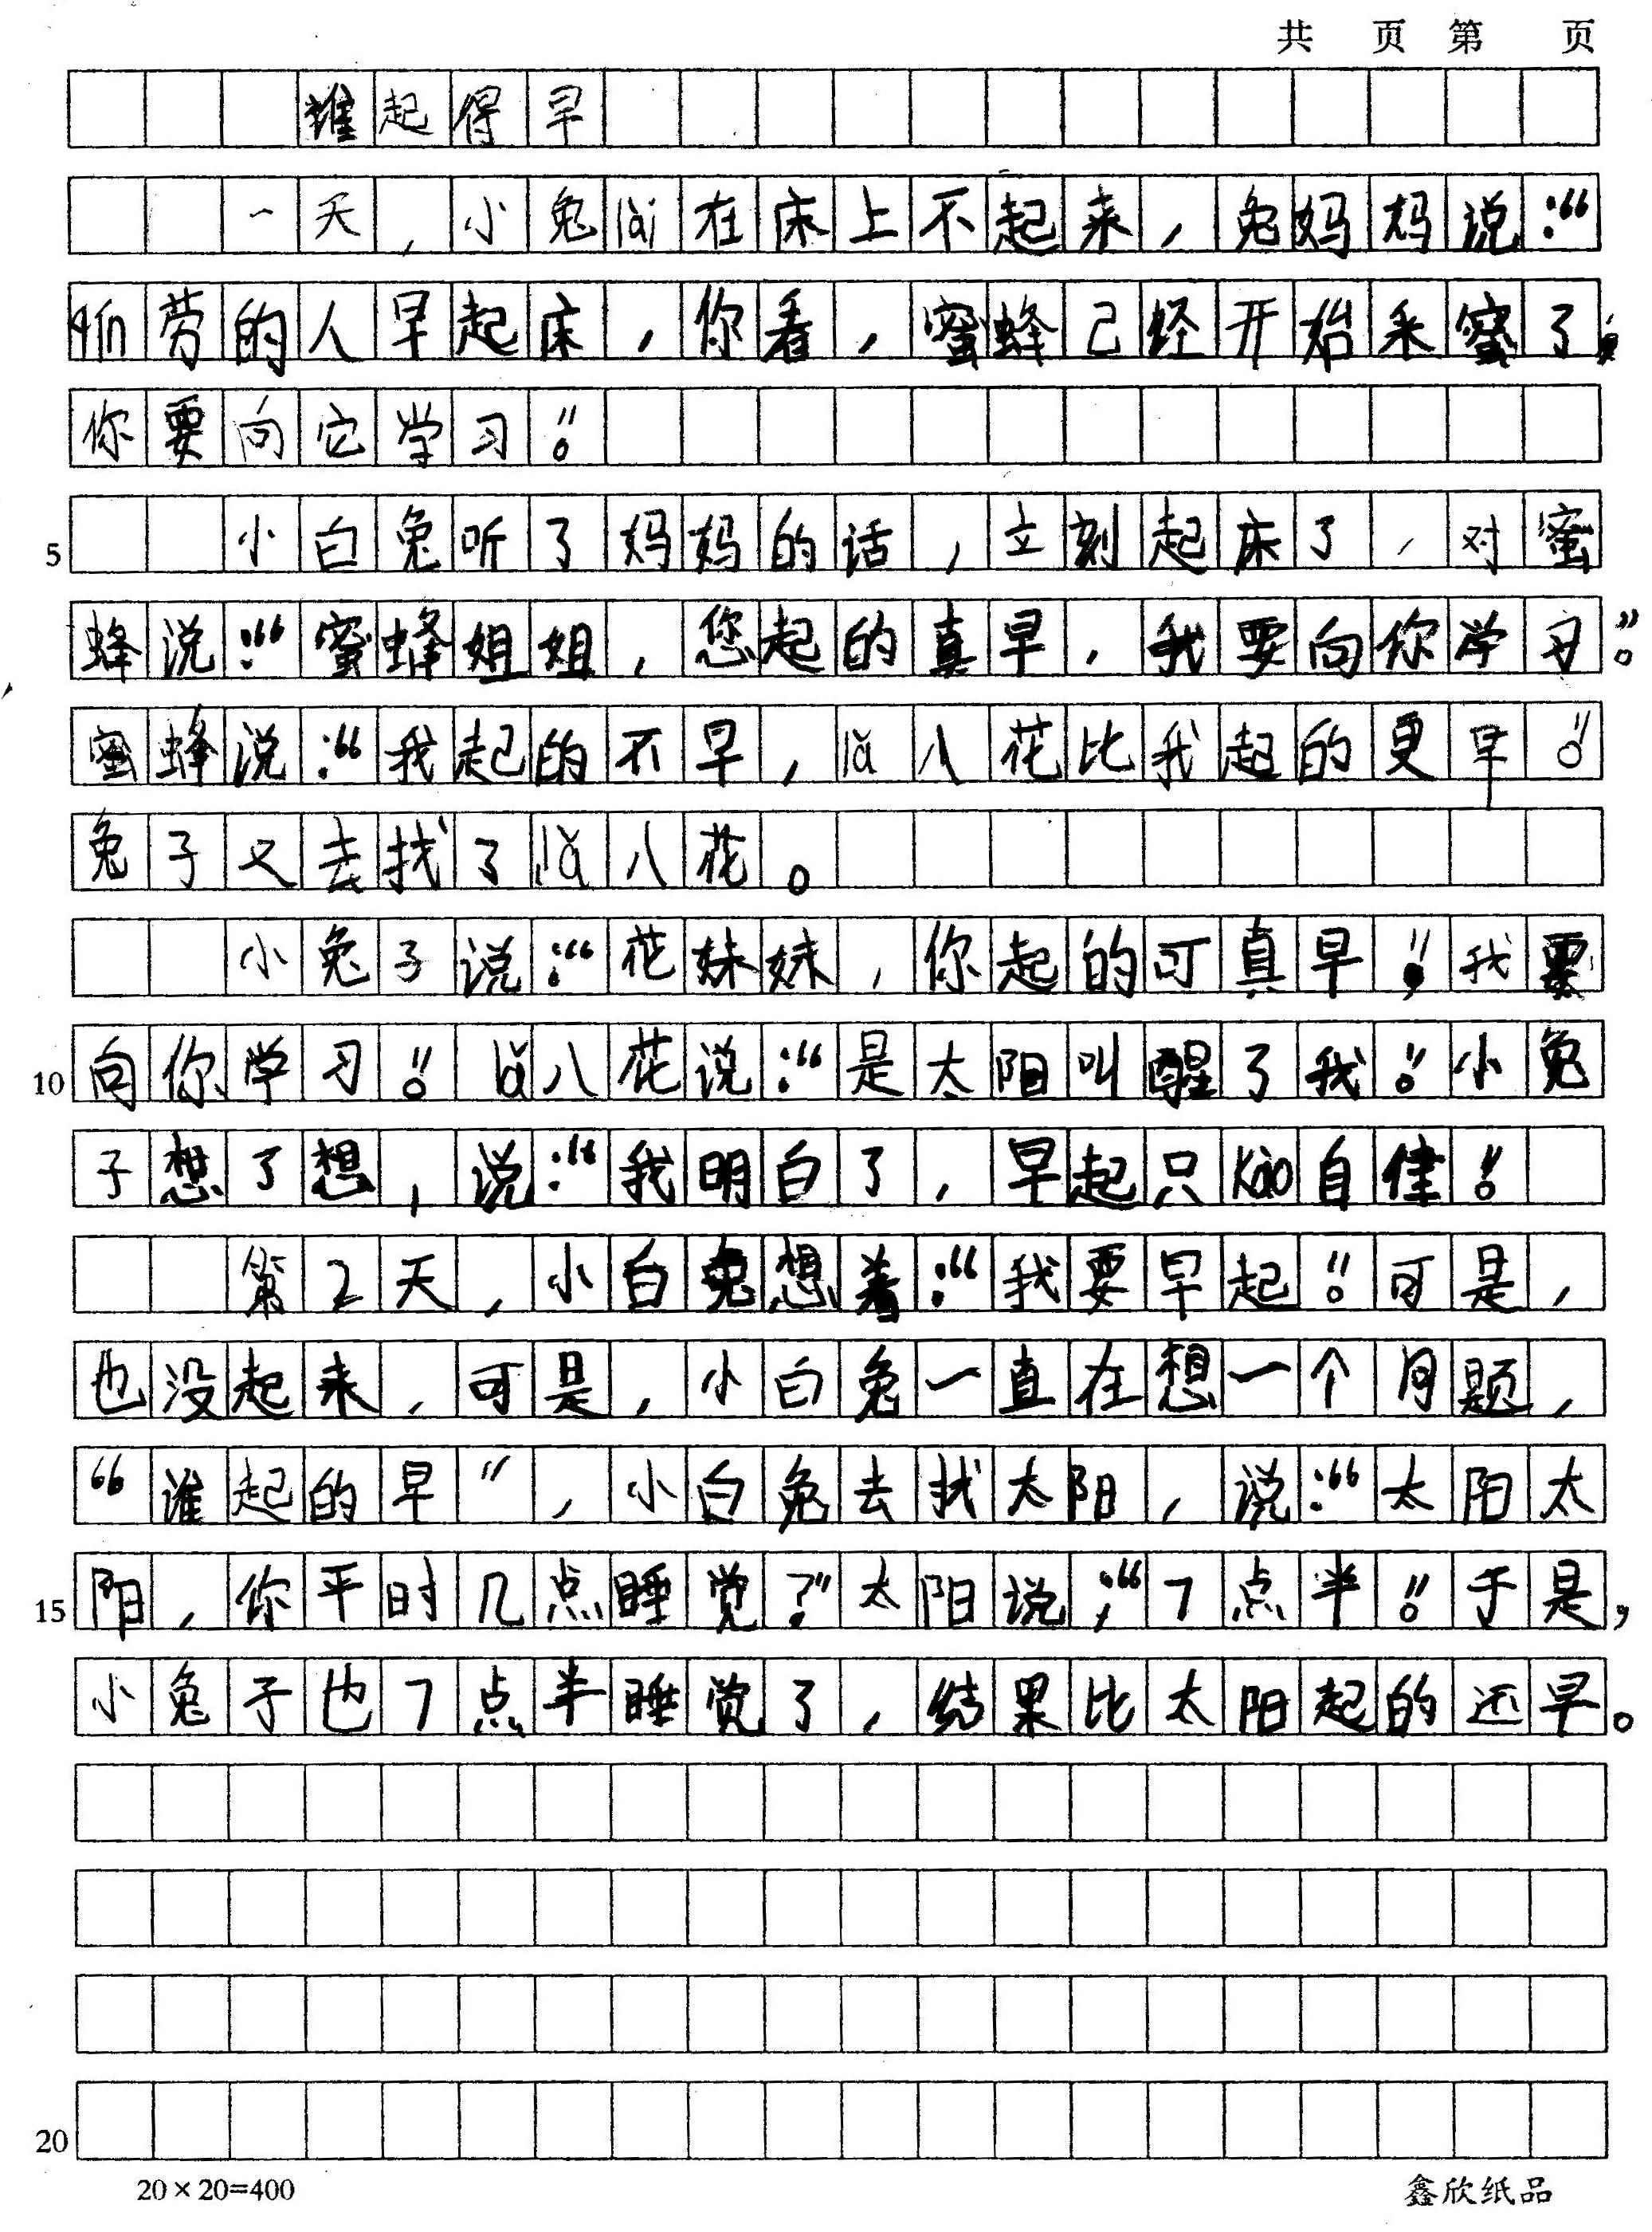 共 页 第 页
谁起得早
一天,小兔lài在床上不起来,兔妈妈说:“
qín劳的人早起床,你看,蜜蜂己经开始采蜜了,
你要向它学习。”
5 小白兔听了妈妈的话,立刻起床了,对蜜
蜂说:“蜜蜂姐姐,您起的真早,我要向你学习。”
蜜蜂说:“我起的不早,lǎ八花比我起的更早。”
兔子又去找了lǎ八花。
小兔子说:“花妹妹,你起的可真早!”我要
10 向你学习。”lǎ八花说:“是太阳叫醒了我。”小兔
子想了想,说:“我明白了,早起只kào自佳。”
第2天,小白兔想着:“我要早起。”可是,
也没起来,可是,小白兔一直在想一个问题,
“谁起的早”,小白兔去找太阳,说:“太阳太
15 阳,你平时几点睡觉?”太阳说:“7点半。”于是,
小兔子也7点半睡觉了,结果比太阳起的还早。
20
20×20=400 鑫欣纸品